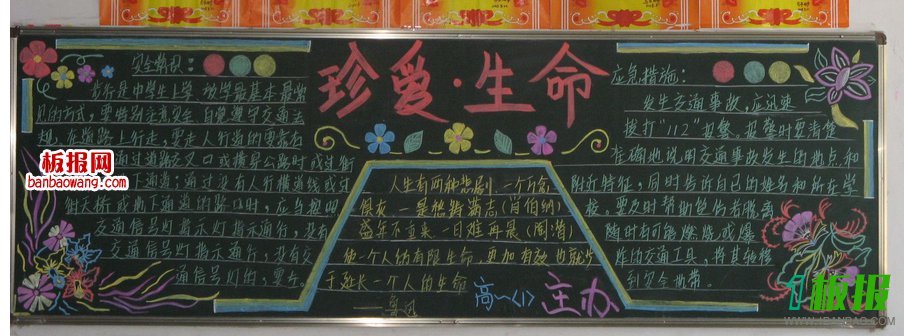 珍爱·生命
安全常识：
步行是中学生上学、放学最基本最常
见的方式，要特别注意安全，自觉遵守交通法
规，在道路上行走，要走人行道的
通过道路交叉口或横穿公路时或过街
地下通道；通过没有人行横道线或过
街天桥或地下通道的路口时，应当按照
交通信号灯指示灯指示通行，没有
交通信号灯指示通行，没有交
通信号灯的，要在
人生有两种悲剧，一个万念
俱灰，一是愁踌满志（肖伯纳）
盛年不重来，一日难再晨（陶潜）
使一个人的有限生命，更加有效，也就等
于延长一个人的生命
鲁迅
高一〈1〉主办
应急措施：
发生交通事故，应迅速
拨打"112"报警。报警时要清楚
准确地说明交通事故发生的地点和
附近特征，同时告诉自己的姓名和所在学
校。要及时帮助受伤者脱离
随时有可能燃烧或爆
炸的交通工具，将其转移
到安全地带。
板报网
banbaowang.cn
板报
WWW.IBANBAO.COM